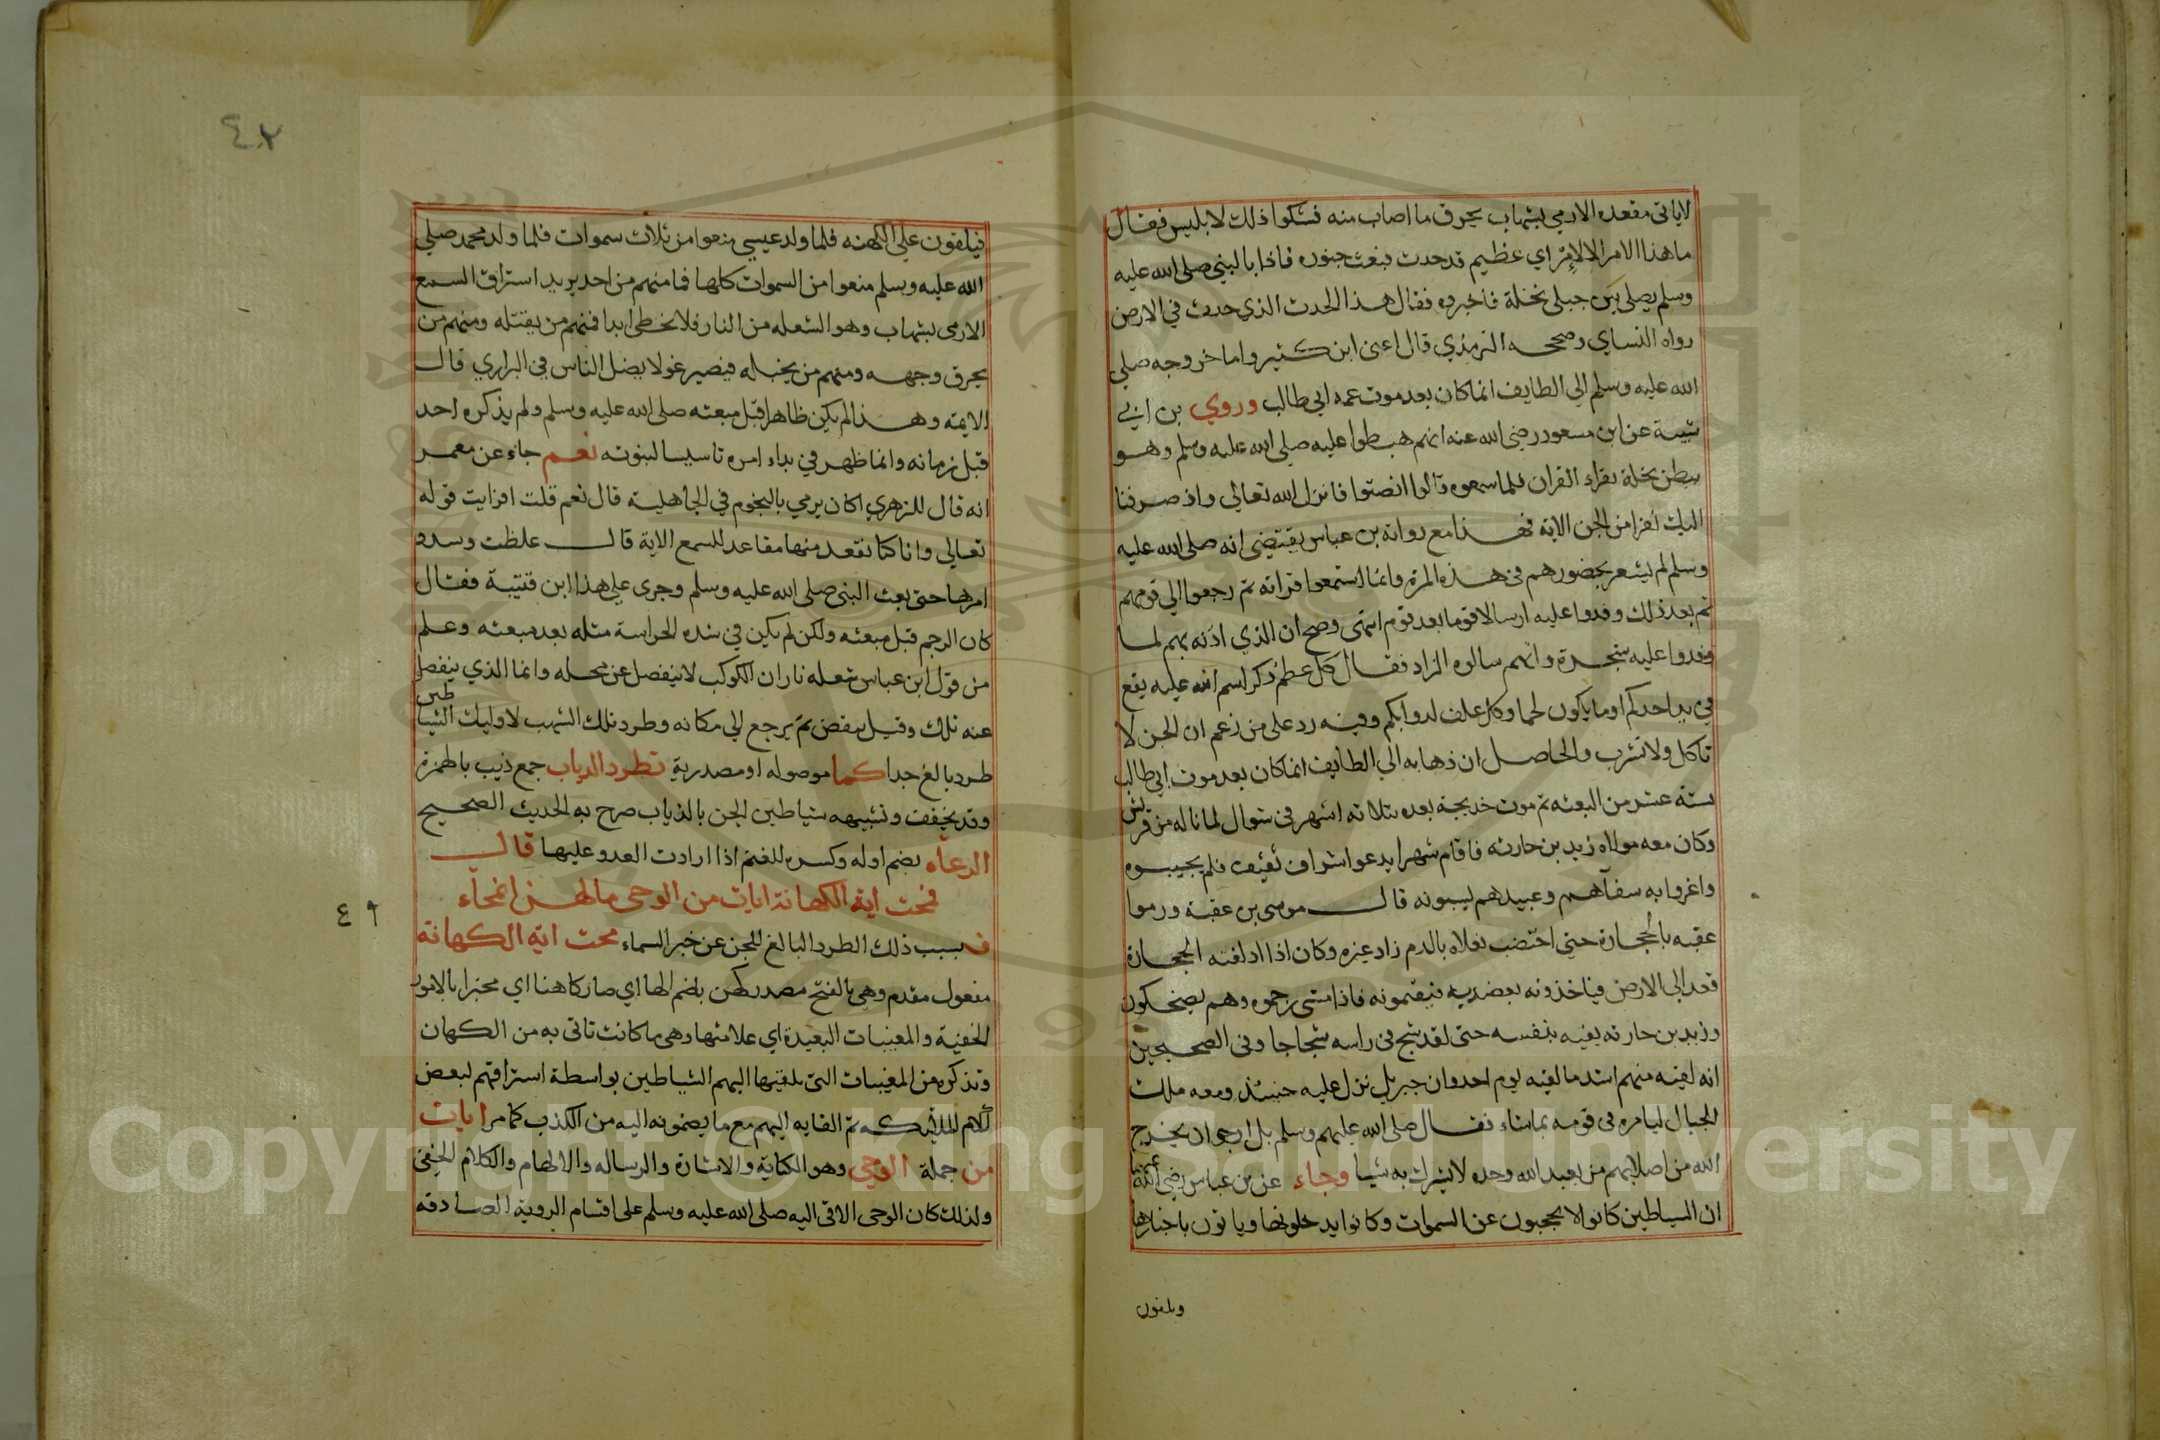 لاياتى مقعده الارمي بشهاب يحرق ما اصاب منه فشكوا ذلك لابليس فقال
ما هذا الامر الا لامر اي عظيم قد حدث فبعث جنوده فاذا بالنبي صلى الله عليه
وسلم يصلي بين جبلى نخلة فاخبروه فقال هذا الحدث الذي حدث في الارض
رواه النساي وصححه الترمذي قال اعنى ابن كثير واما خروجه صلى
الله عليه وسلم الي الطايف انما كان بعد موت عمه ابي طالب وروي بن ابي
شيبة عن ابن مسعود رضى الله عنه انهم هبطوا عليه صلى الله عليه وسلم وهو
ببطن نخلة يقراء القران فلما سمعوه قالوا انصتوا فانزل الله تعالى واذ صرفنا
اليك نفرا من الجن الاية فهذا مع رواية بن عباس يقتضى انه صلى الله عليه
وسلم لم يشعر بحضورهم فى هذه المرة وانما استمعوا قراته ثم رجعوا الي قومهم
ثم بعد ذلك وفدوا عليه ارسالا قوما بعد قوم انتهى وصح ان الذي اذنه بهم لما
وفدوا عليه شجرة وانهم سالوه الزاد فقال كل عظم ذكر اسم الله عليه يقع
في يد احدكم اوما يكون لحما وكل علف لدوابكم وفيه رد على من زعم ان الجن لا
تاكل ولا تشرب والحاصل ان ذهابه الي الطايف انما كان بعد موت ابي طالب
سنة عشر من البعثه ثم موت خديجة بعده بثلاثه اشهر فى شوال لما ناله من قريش
وكان معه مولاه زيد بن حارثه فاقام شهرا يدعوا اشراف ثقيف فلم يجيبوه
واغروا به سفآهم وعبيدهم ليسبونه قال موسى بن عقبة ورموا
عقبه بالحجارة حتى اختضب نعلاه بالدم زاد غيره وكان اذا اذلقته الحجارة
قعد الى الارض فياخذونه بعضديه فيقيمونه فاذا مشى رجموه وهم يضحكون
وزيد بن حارثه يقيه بنفسه حتى لقد شج فى راسه شجاجا وفى الصحيحين
انه لقيه منهم اشد ما لقيه يوم احد وان جبريل نزل عليه حينئذ ومعه ملك
الجبال ليامره فى قومه بما شاء فقال صلى الله عليهم وسلم بل ارجوا ان يخرج
الله من اصلابهم من يعبد الله وحده لا يشرك به شيا وجاء عن بن عباس رضي الله عنهما
ان الشياطين كانوا لا يحجبون عن السموات وكانوا يدخلونها وياتون باخبارها
ويلقون
٤٢
فيلقون على الكهنه فلما ولد عيسى منعوا من ثلاث سموات فلما ولد محمد صلي
الله عليه وسلم منعوا من السموات كلها فما منهم من احد يريد استراق السمع
الارمى بشهاب وهو الشعله من النار فلا يخطى ابدا فمنهم من يقتله ومنهم من
يحرق وجهه ومنهم من يخبله فيصير غولا يضل الناس في البراري قال
الايمة وهذا لم يكن ظاهرا قبل مبعثه صلى الله عليه وسلم ولم يذكره احد
قبل زمانه وانما ظهر في بداء امره تاسيسا لنبوته نعم جاء عن معمر
انه قال للزهري اكان يرمي بالنجوم في الجاهلية قال نعم قلت افرايت قوله
تعالى وانا كنا نقعد منها مقاعد للسمع الاية قال غلظت وشدد
امرها حتى بعث النبى صلى الله عليه وسلم وجرى علي هذا ابن قتيبة فقال
كان الرجم قبل مبعثه ولكن لم يكن في شدة الحراسة مثله بعد مبعثه وعلم
من قول ابن عباس شعله نار ان الكوكب لا ينفصل عن محله وانما الذي ينفصل
عنه تلك وقيل ينقض ثم يرجع الي مكانه وطرد تلك الشهب لاوليك الشياطين
طرد بالغ جدا كما موصوله او مصدرية تطرد الدياب جمع ذيب بالهمزة
وقد يخفف وتشبيهه شياطين الجن بالذياب صرح به الحديث الصحيح
الرعاء بضم اوله وكسره للغنم اذا ارادت العدو عليها قال
فمحت اية الكهانة ايات من الوحى ما لهن انمحاء
٤٩
فبسبب ذلك الطرد البالغ للجن عن خبر السماء محت اية الكهانة
مفعول مقدم وهى بالفتح مصدر كهن بضم الها اي صار كاهنا اي مخبرا بالامور
الخفية والمغيبات البعيدة اي علامتها وهى ما كانت تاتى به من الكهان
وتذكره من المغيبات التى يلقيها اليهم الشياطين بواسطة استراقهم لبعض
كلام الملئيكه ثم القايه اليهم مع ما يضمونه اليه من الكذب كما مر ايات
من جملة الوحي وهو الكتابة والاشارة والرسالة والالهام والكلام الخفى
ولذلك كان الوحى الاقى اليه صلى الله عليه وسلم على اقسام الروية الصادقه
Copyright © King Saud University